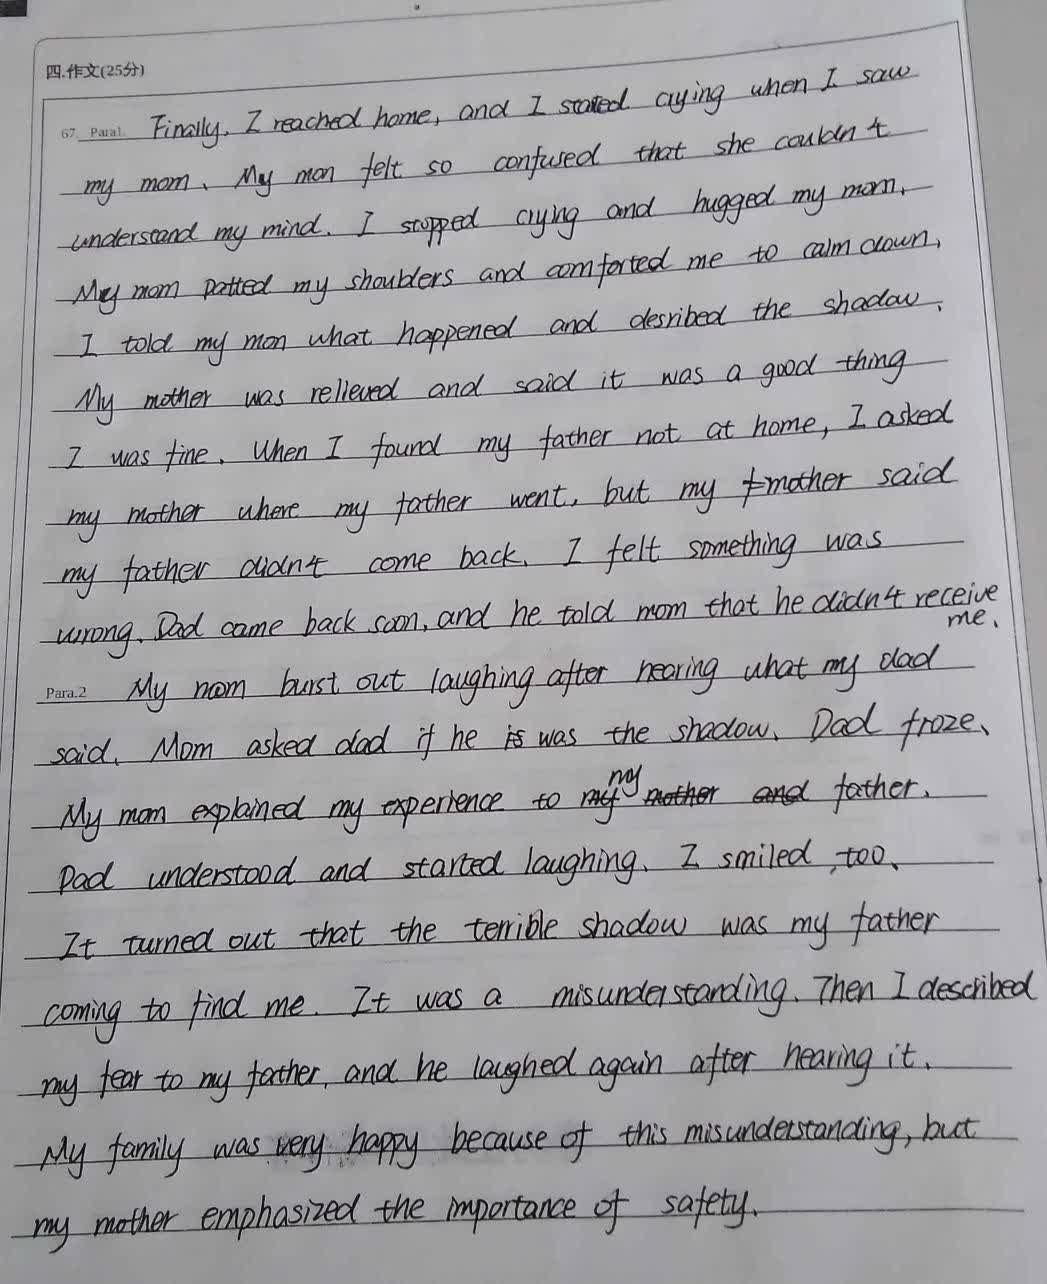 四.作文(25分)
67. Para1. Finally, I reached home, and I stated crying when I saw
my mom. My mon felt so confused that she couldn't
understand my mind. I stopped crying and hugged my mom.
My mom patted my shoulders and comforted me to calm down,
I told my mon what happened and desribed the shadow.
My mother was relieved and said it was a good thing
I was fine. When I found my father not at home, I asked
my mother where my father went, but my mother said
my father didn't come back. I felt something was
wrong. Dad came back soon, and he told mom that he didn't receive
me.
Para.2 My mom burst out laughing after hearing what my dad
said. Mom asked dad if he is was the shadow. Dad froze.
My mom explained my experience to my my mother and father.
Dad understood and started laughing. I smiled, too.
It turned out that the terrible shadow was my father
coming to find me. It was a misunderstanding. Then I described
my fear to my father, and he laughed again after hearing it.
My family was very happy because of this misunderstanding, but
my mother emphasized the importance of safety.